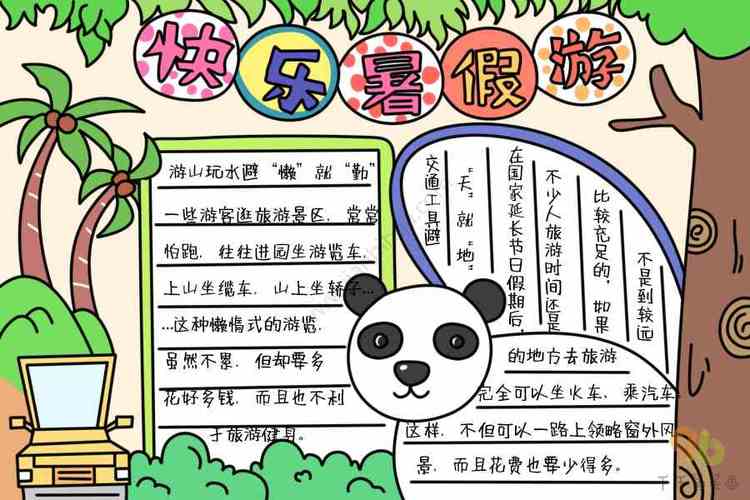 快乐暑假游
游山玩水避“懒”就“勤”
一些游客逛旅游景区，常常
怕跑，往往进园坐游览车，
上山坐缆车，山上坐轿子...
...这种懒惰式的游览，
虽然不累，但却要多
花好多钱，而且也不利
于旅游健身。
交通工具避
“天”就“地”
在国家延长节日假期后，
不少人旅游时间还是
比较充足的，如果
不是到较远
的地方去旅游
完全可以坐火车，乘汽车，
这样，不但可以一路上领略窗外风
景，而且花费也要少得多。